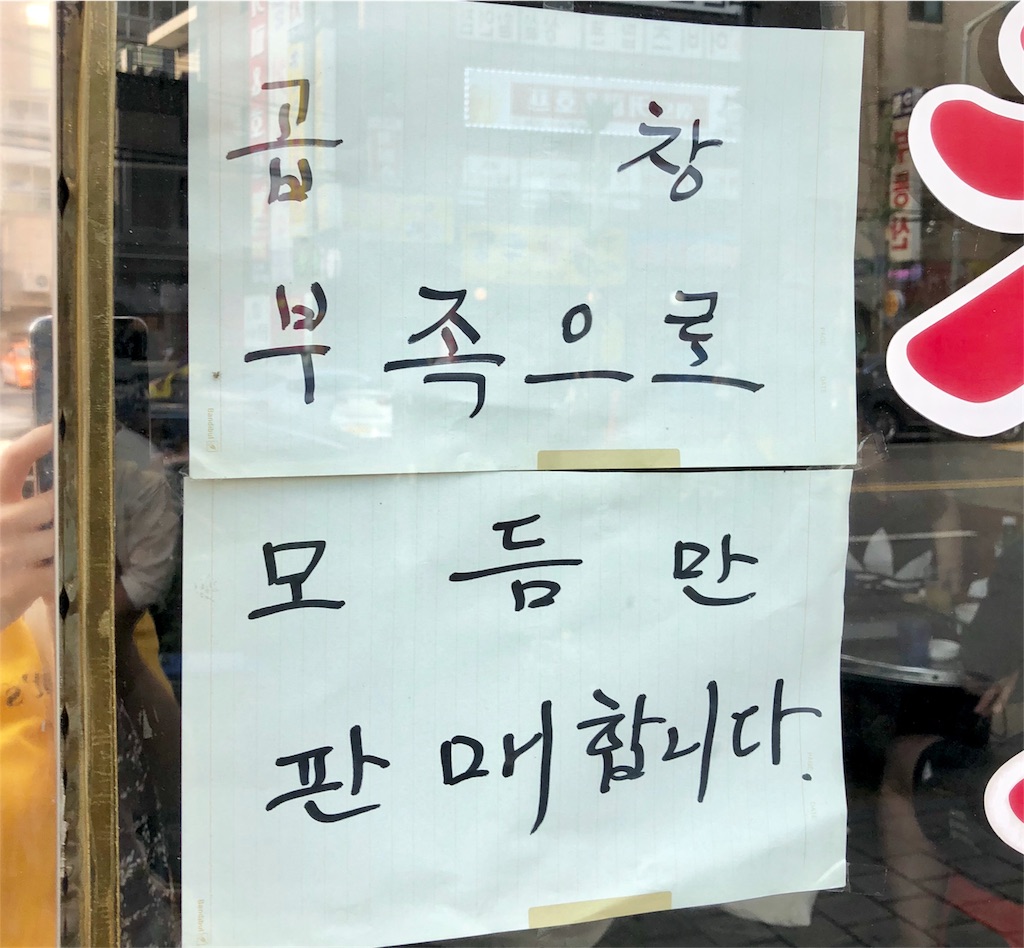 곱 창
부족으로
모 듬 만
판매합니다.